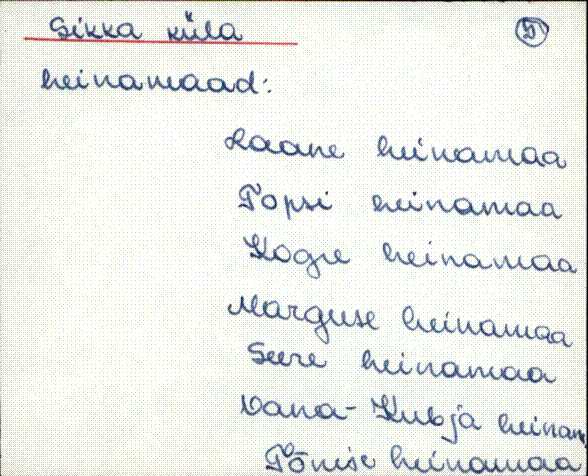 Sikka küla
heinamaad:
Laane heinamaa
Topsi heinamaa
Kogre heinamaa
Marguse heinamaa
Seere heinamaa
Vana-Kubja heinam
Tõnise heinamaa